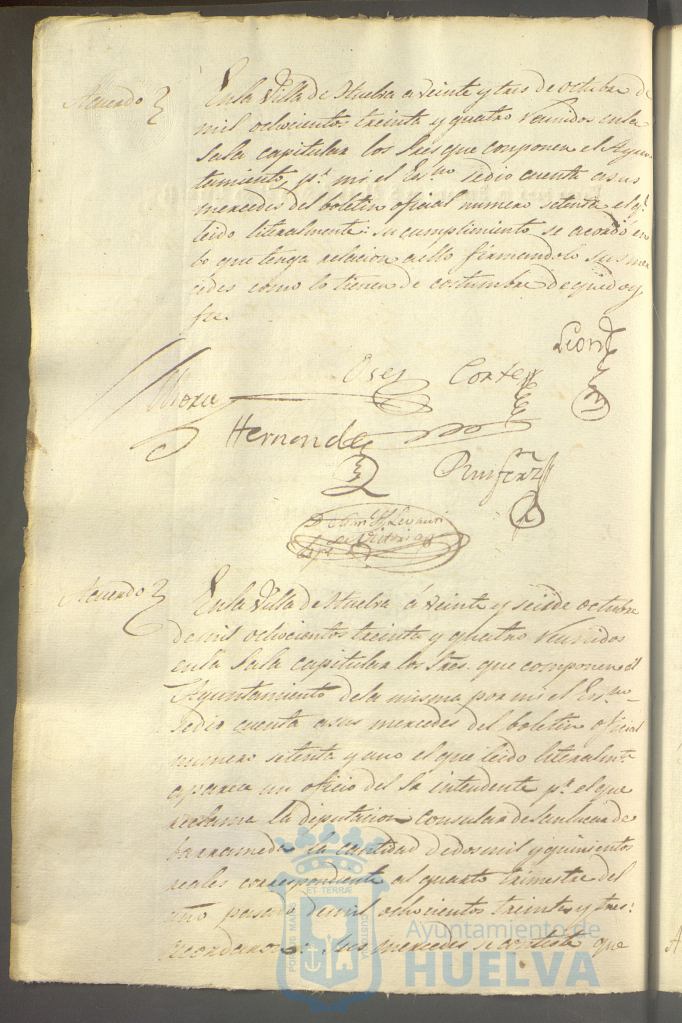 Acuerdo
En la Villa de Huelva a veinte y tres de octubre de
mil ochocientos treinta y quatro reunidos en la
Sala capitular los Sres que componen el Ayun-
tamiento, pr. mi el Esno. se dio cuenta a sus
mercedes del boletin oficial numero setenta el q.
leido literalmente: su cumplimiento se acordó en
lo que tenga relacion a ello firmandolo sus mer
cedes como lo tienen de costumbre de que doy
fee.
Leon
Mora
Oses Cortes
Hernandez
Acuerdo
En la Villa de Huelva á veinte y seis de octubre
de mil ochocientos treinta y quatro reunidos
en la Sala capitular los Sres. que componen el
Ayuntamiento de la misma por mi el Esno.
se dio cuenta a sus mercedes del boletin oficial
numero setenta y uno el que leido literalmte
aparece un oficio del Sr. intendente pr. el que
reclama la diputacion consular de Sanlucar de
barrameda la cantidad de dos mil y quinientos
reales correspondiente al quarto trimestre del
año pasado de mil ochocientos treinta y tres:
acordaron sus mercedes se conteste que
Ayuntamiento de
HUELVA